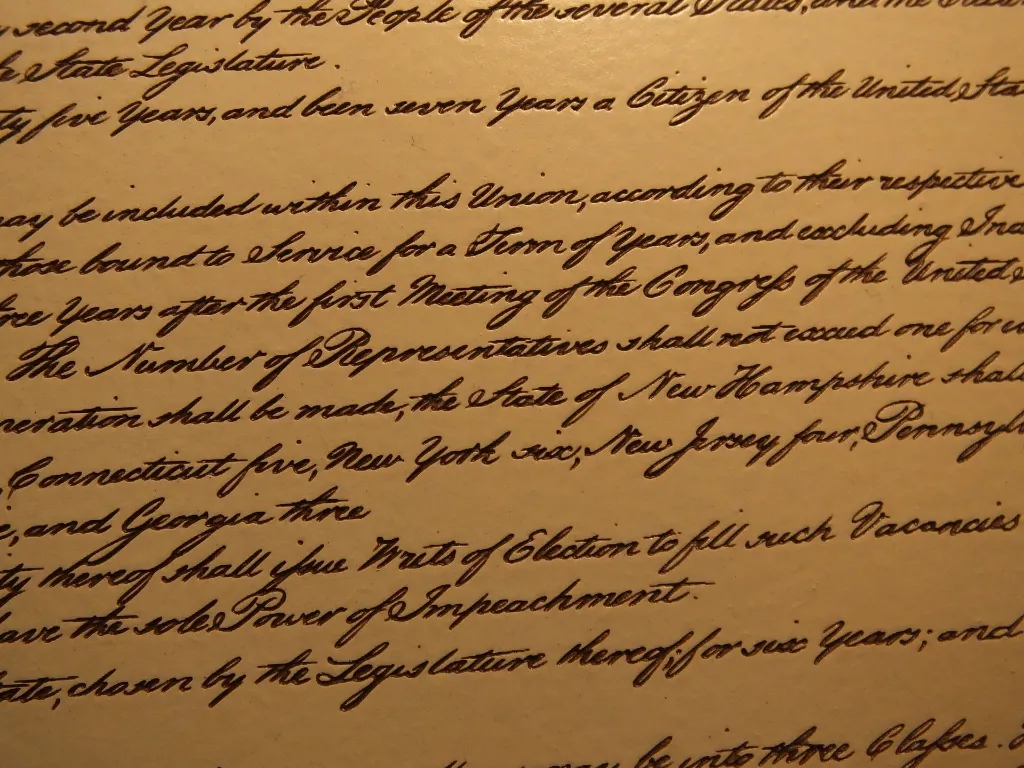 second Year by the People of the several States, and the
State Legislature.
ty five Years, and been seven Years a Citizen of the United Sta
may be included within this Union, according to their respective
those bound to Service for a Term of Years, and excluding Ind
ree Years after the first Meeting of the Congreſs of the United S
The Number of Representatives shall not exceed one for e
meration shall be made, the State of New Hampshire shall
Connecticut five, New York six, New Jersey four, Pennsylv
e, and Georgia three
ty thereof shall iſsue Writs of Election to fill such Vacancies
have the sole Power of Impeachment.
tate, chosen by the Legislature thereof, for six Years; and
may be into three Claſses.